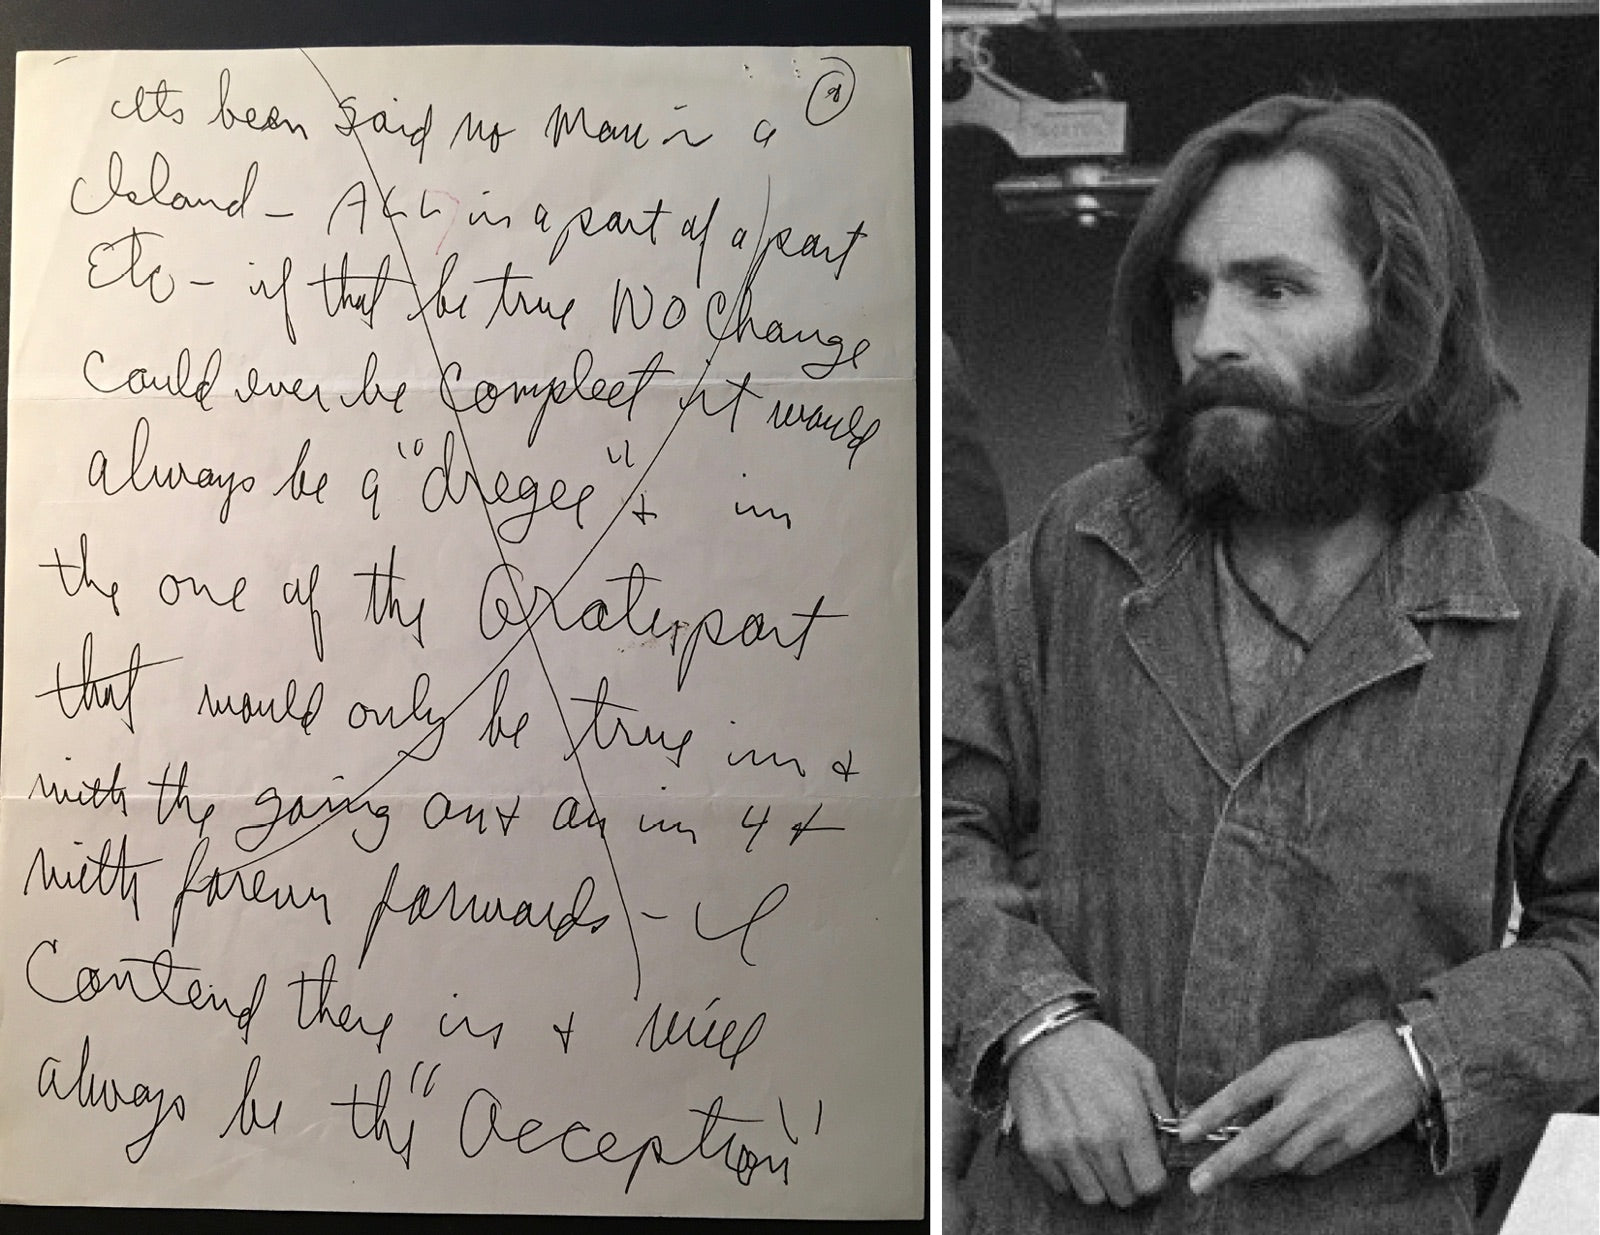 its been said no man is a
Island - ALL is a part of a part
Etc - if that be true NO Change
could ever be Compleet it would
always be a "dregee" + in
the one of the Grater part
that would only be true in +
with the going out an in 4 +
with forever forwards - I
Contend there is + will
always be the "Acception"